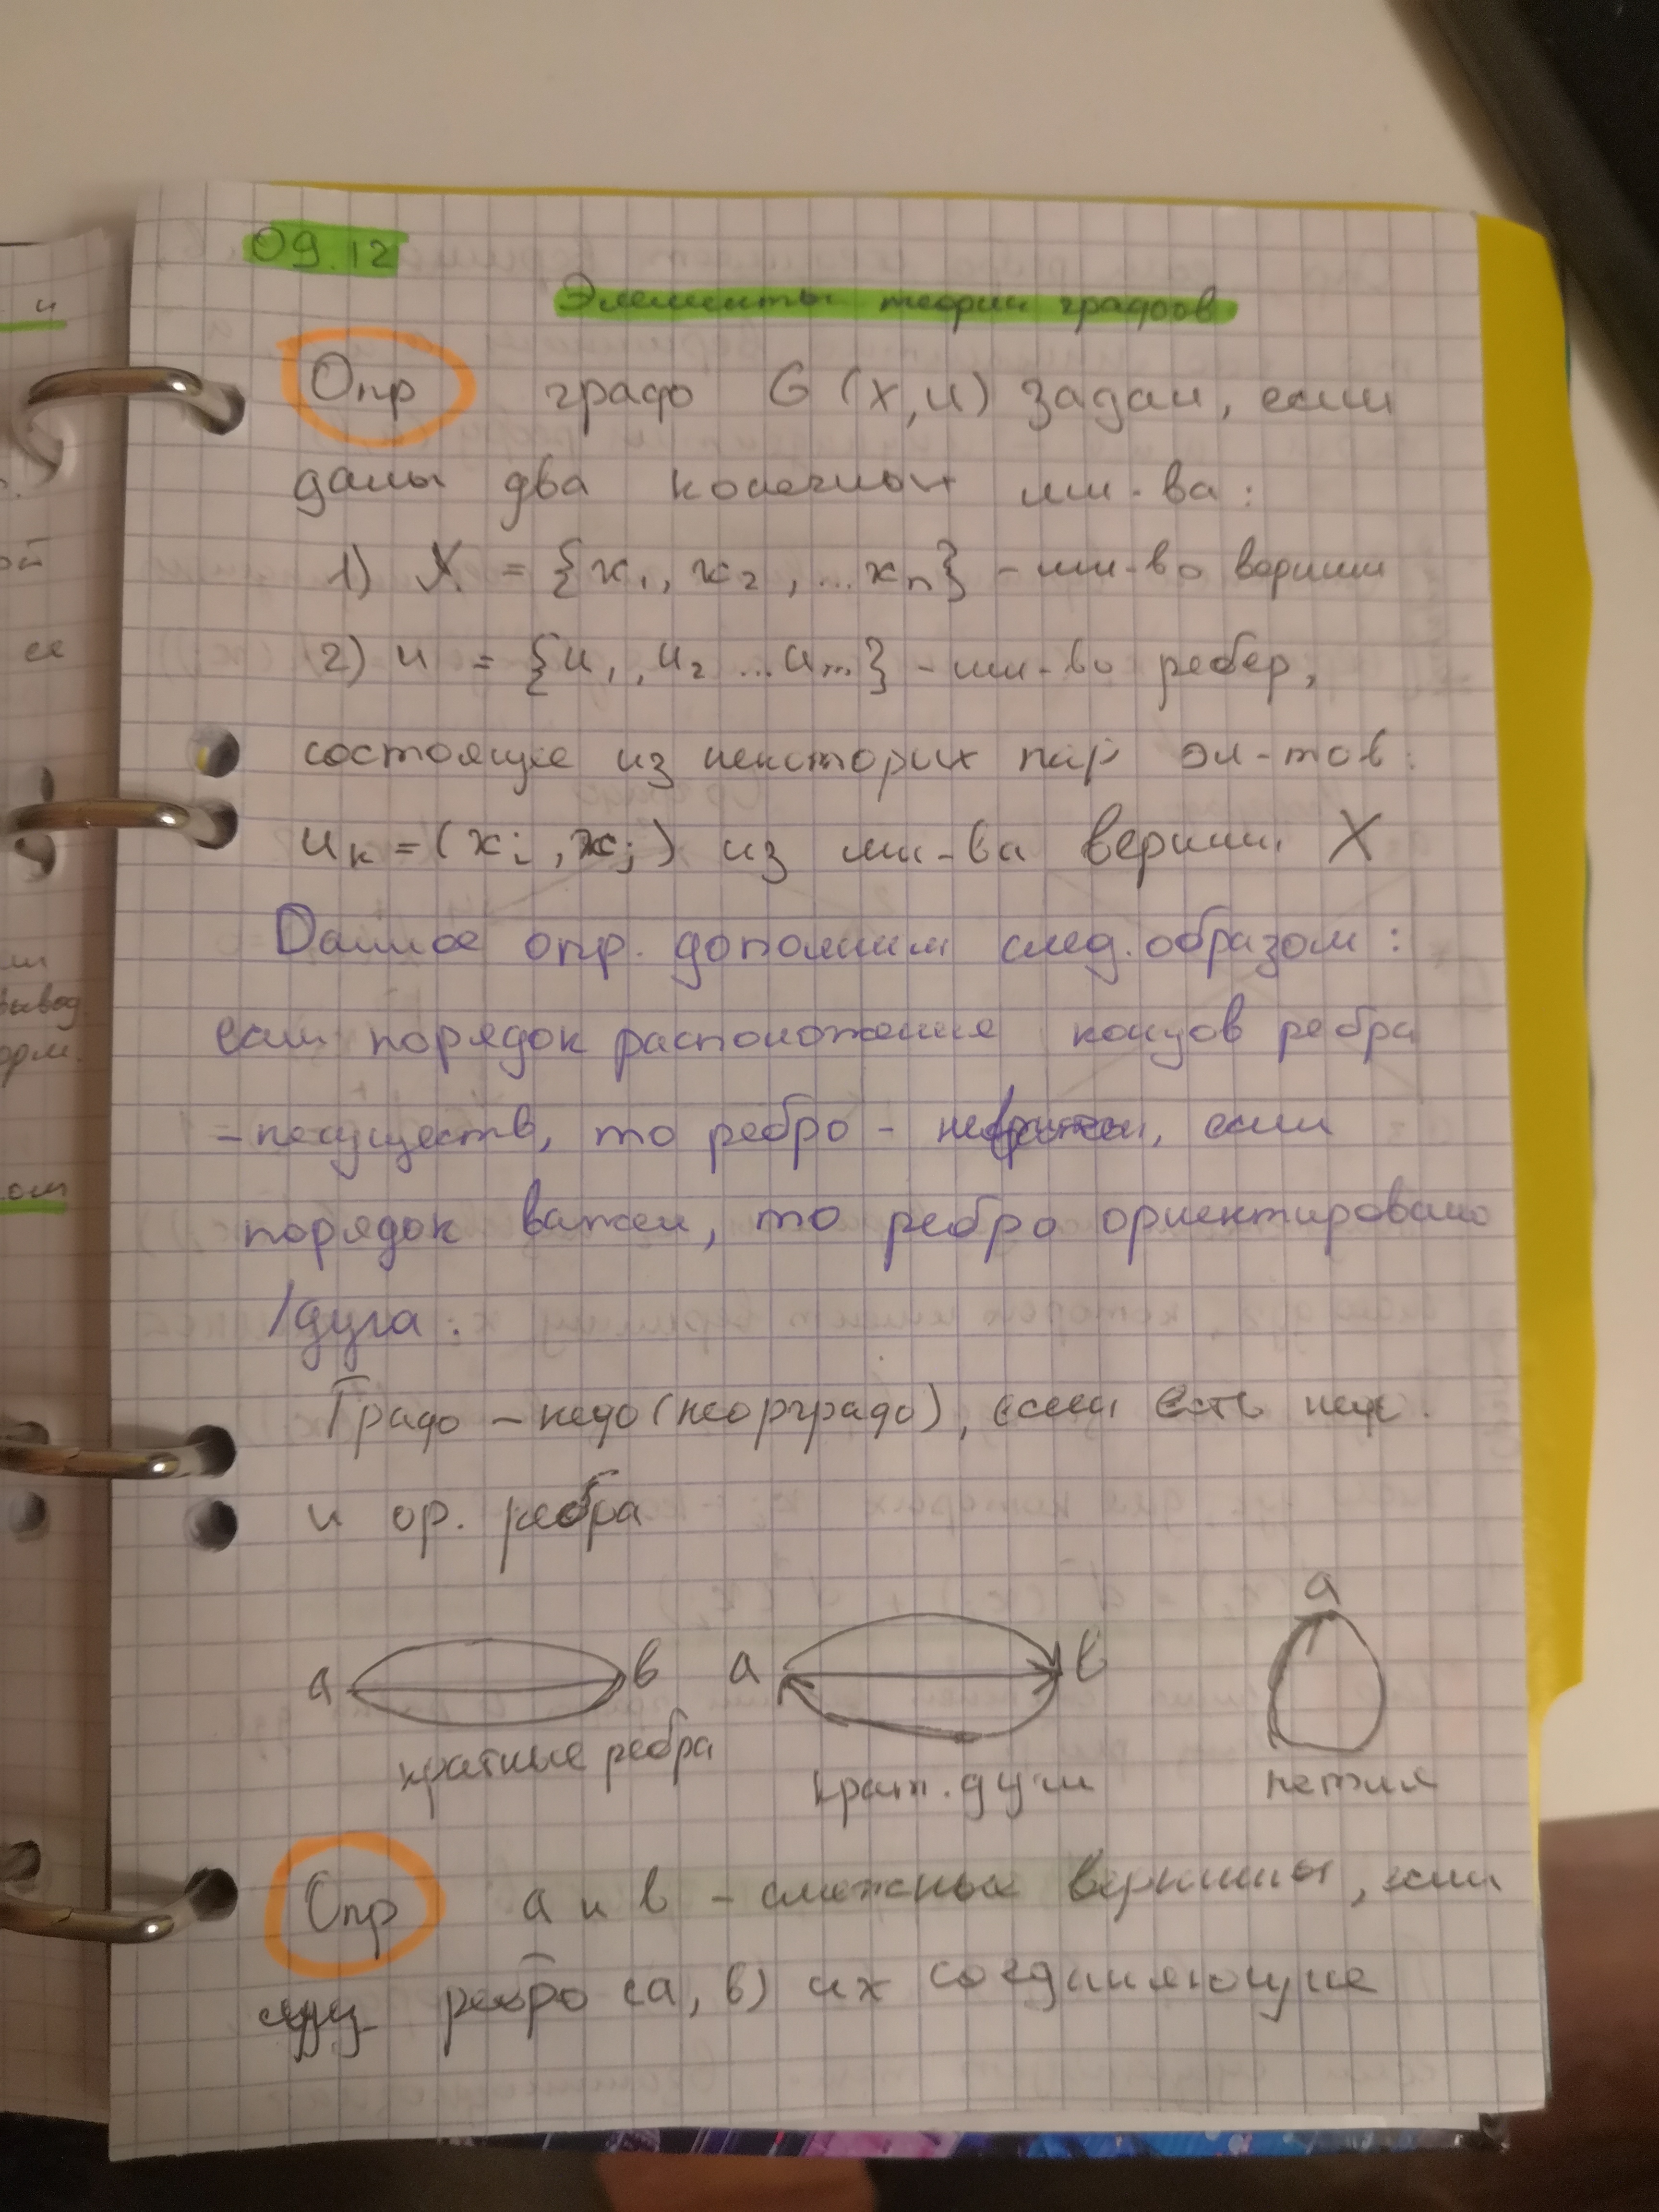 09.12
Элементы теории графов
Опр граф G (X, U) задан, если
даны два конечных мн-ва:
1) X = {x₁, x₂, ... xₙ} - мн-во вершин
2) U = {u₁, u₂ ... uₘ} - мн-во ребер,
состоящее из некоторых пар эл-тов:
uₖ = (xᵢ, xⱼ) из мн-ва вершин X
Данное опр. дополним след. образом:
если порядок расположения концов ребра
- несуществ, то ребро - если
порядок важен, то ребро ориентировано
/дуга.
Граф - (неорграф), если есть
и ор. ребра
a
a в a в
кратные ребра
крат. дуги петля
Опр a и в - смежные вершины, если
ребро (a, в) их соединяющие